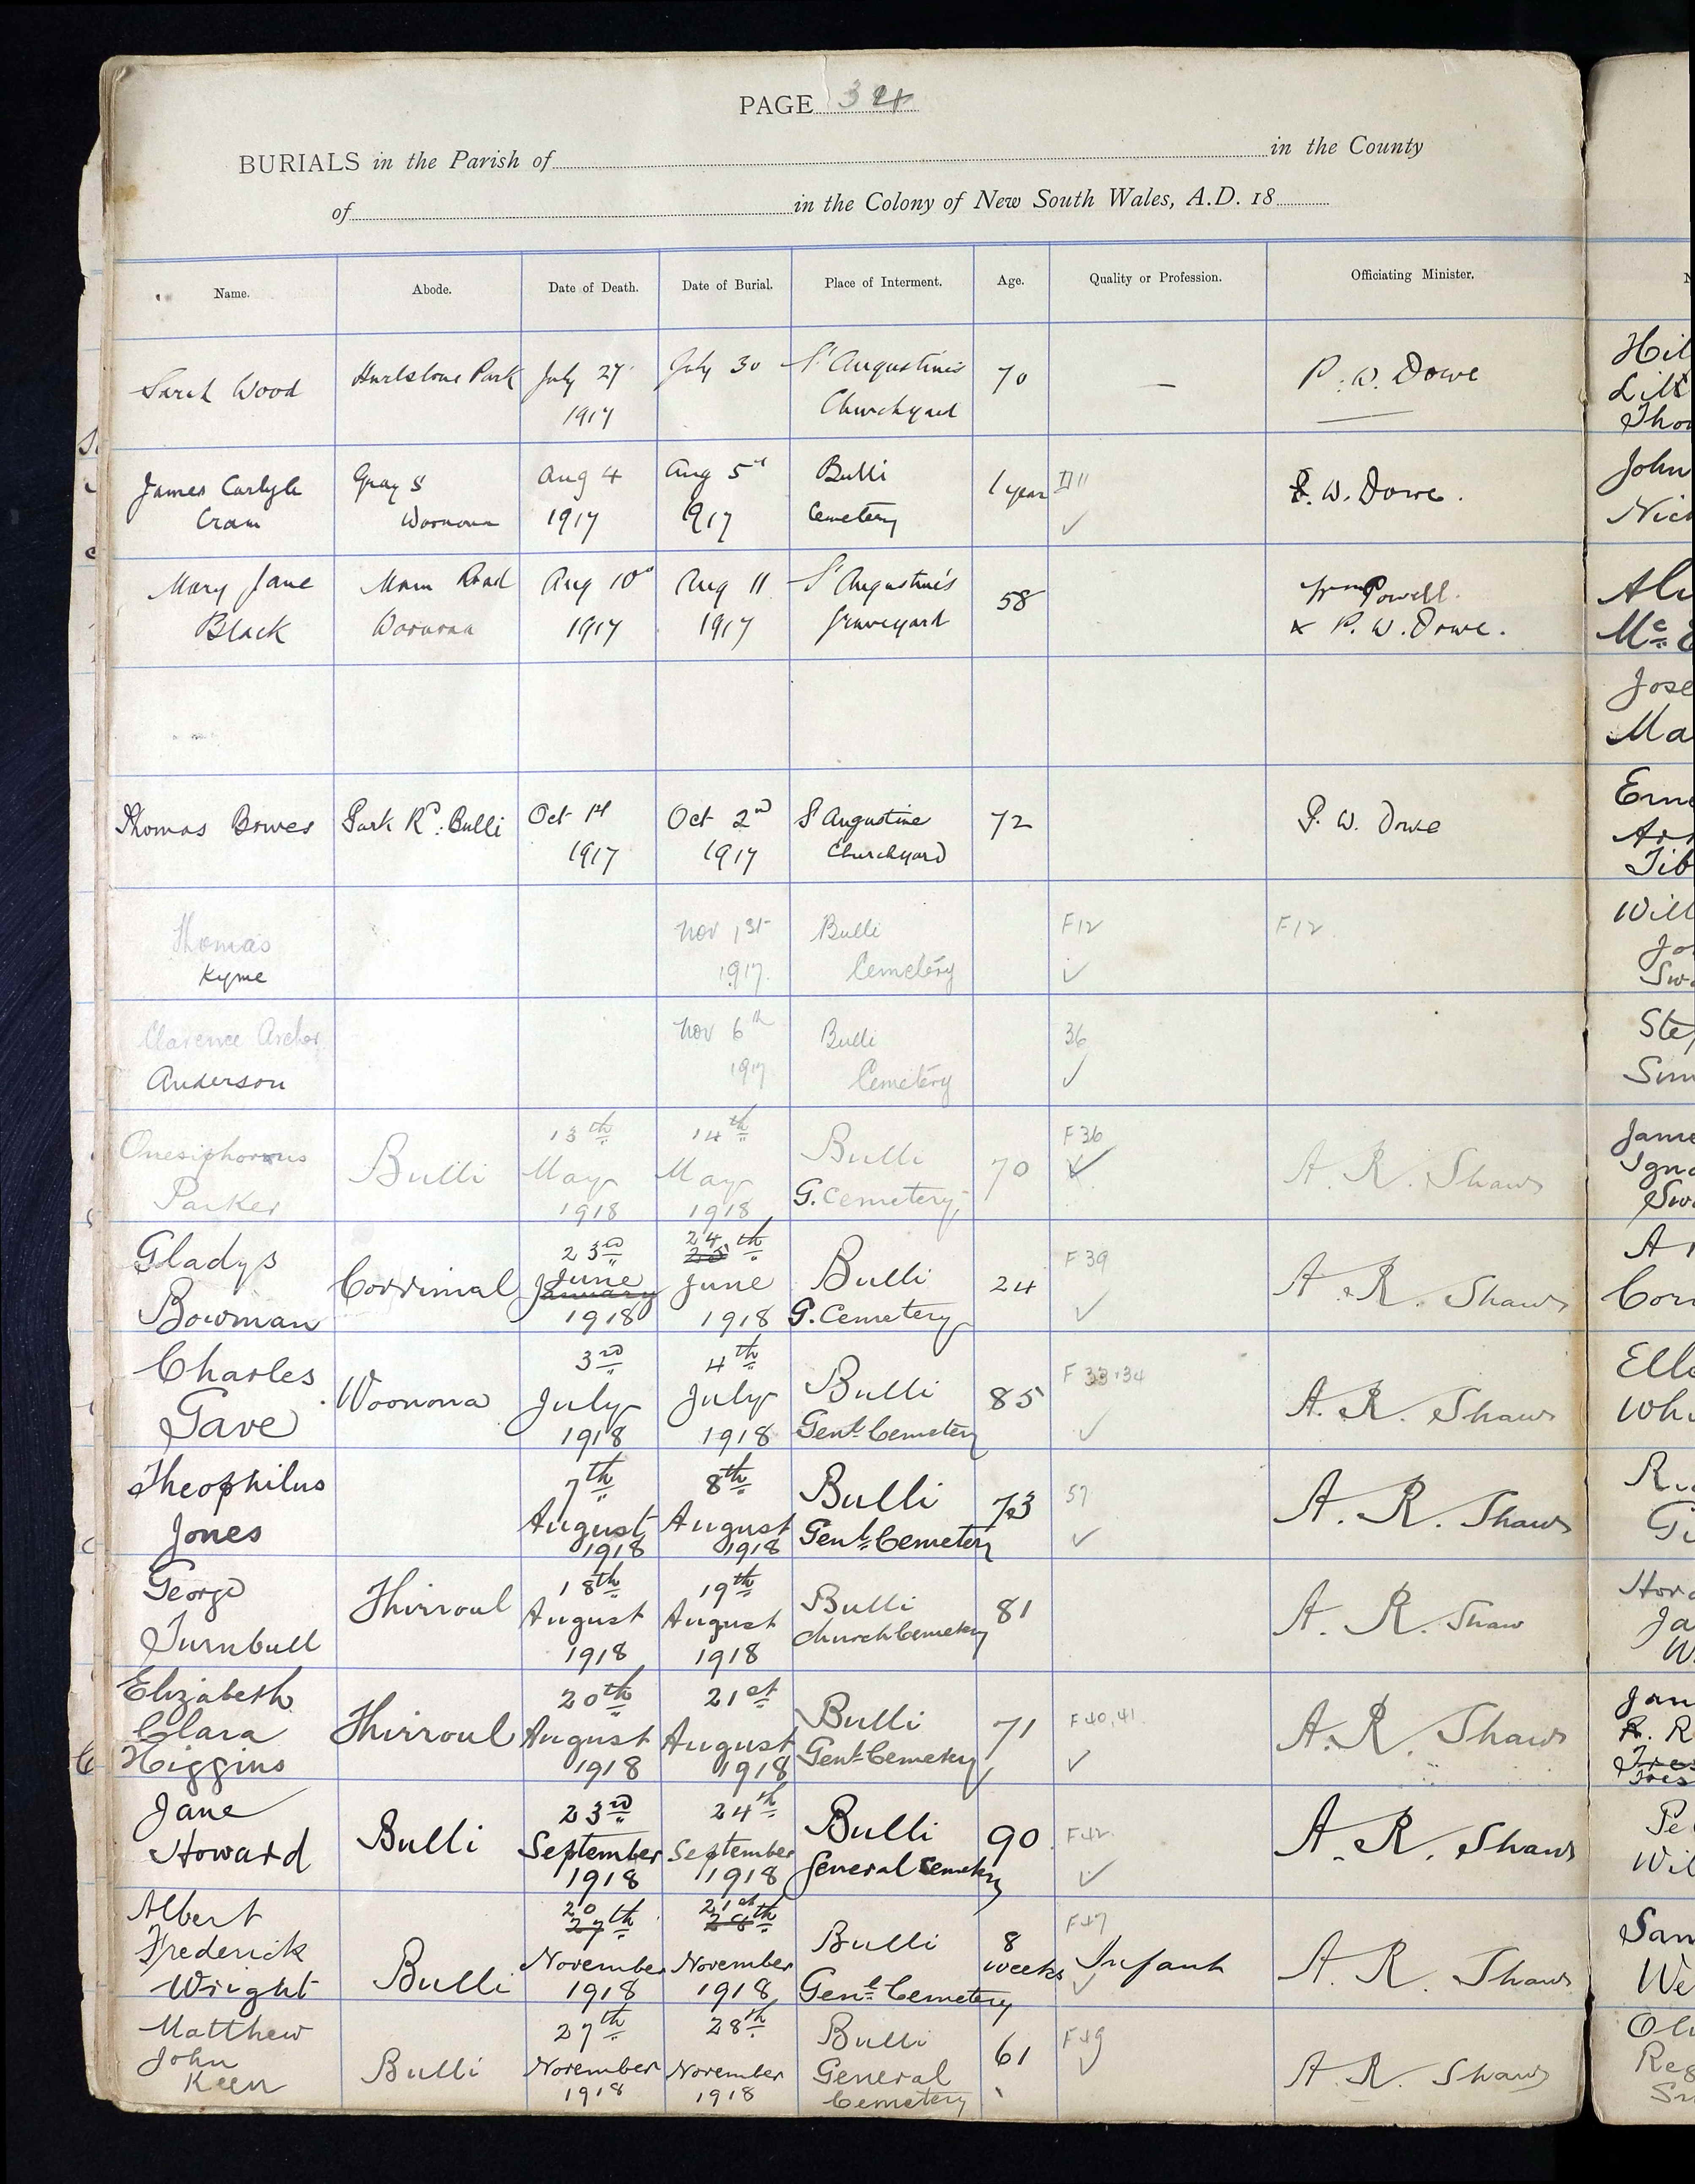 PAGE 34
BURIALS in the Parish of in the County
of in the Colony of New South Wales, A.D. 18
Name. Abode. Date of Death. Date of Burial. Place of Interment. Age. Quality or Profession. Officiating Minister.
Sarah Wood Hurlstone Park July 27 July 30 St Augustine's 70 — P. W. Dowe
1917 Churchyard
James Carlyle Gray S Aug 4 Aug 5th Bulli 1 year P. W. Dowe.
Cram Woonona 1917 1917 Cemetery ✓
Mary Jane Main Road Aug 10th Aug 11 St Augustine's 58 Wm Powell.
Black Woonona 1917 1917 graveyard & P. W. Dowe.
Thomas Bowes Park Rd. Bulli Oct 1st Oct 2nd St Augustine 72 P. W. Dowe
1917 1917 Churchyard
Thomas Nov 1st Bulli F12 F12
Kyme 1917. Cemetery ✓
Clarence Archer Nov 6th Bulli 36
Anderson 1917 Cemetery ✓
Onesiphorous Bulli 13th 14th Bulli 70 F36 A. R. Shaw
Parker May May G. Cemetery ✓
1918 1918
Gladys Corrimal 23rd 24th Bulli 24 F39 A. R. Shaw
Bowman June June G. Cemetery ✓
January
1918 1918
Charles Woonona 3rd 4th Bulli 85 F 33+34 A. R. Shaw
Gave July July Genl. Cemetery ✓
1918 1918
Theophilus 7th 8th Bulli 73 57 A. R. Shaw
Jones August August Genl. Cemetery ✓
1918 1918
George Thirroul 18th 19th Bulli 81 A. R. Shaw
Turnbull August August Church Cemetery
1918 1918
Elizabeth Thirroul 20th 21st Bulli 71 F 40, 41. A. R. Shaw
Clara August August Genl. Cemetery ✓
Higgins 1918 1918
Jane Bulli 23rd 24th Bulli 90 F42 A. R. Shaw
Howard September September General Cemetery ✓
1918 1918
Albert 20 21st F47
Frederick Bulli 27th 28th Bulli 8 weeks Infant A. R. Shaw
Wright November November Genl. Cemetery ✓
1918 1918
Matthew 27th 28th Bulli F49
John Bulli November November General 61 A. R. Shaw
Keen 1918 1918 Cemetery